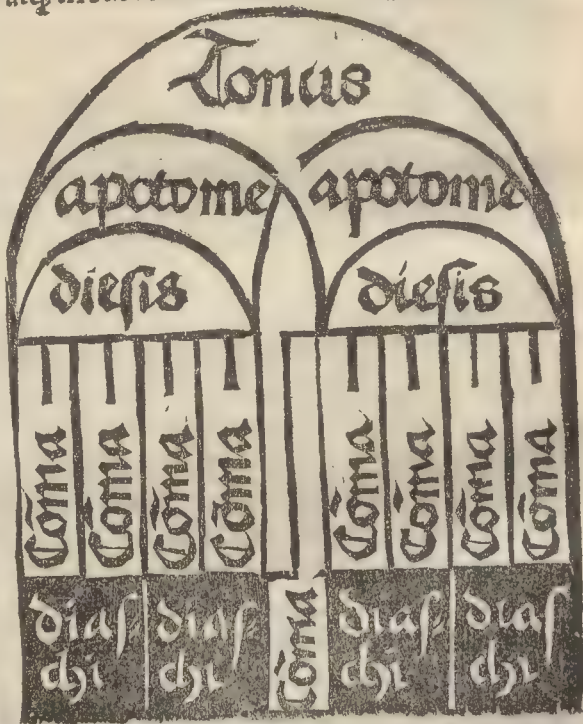 Tonus
apotome apotome
diesis diesis
Cōma Cōma Cōma Cōma Cōma Cōma Cōma Cōma
Cōma
diaſ diaſ diaſ diaſ
chi chi chi chi